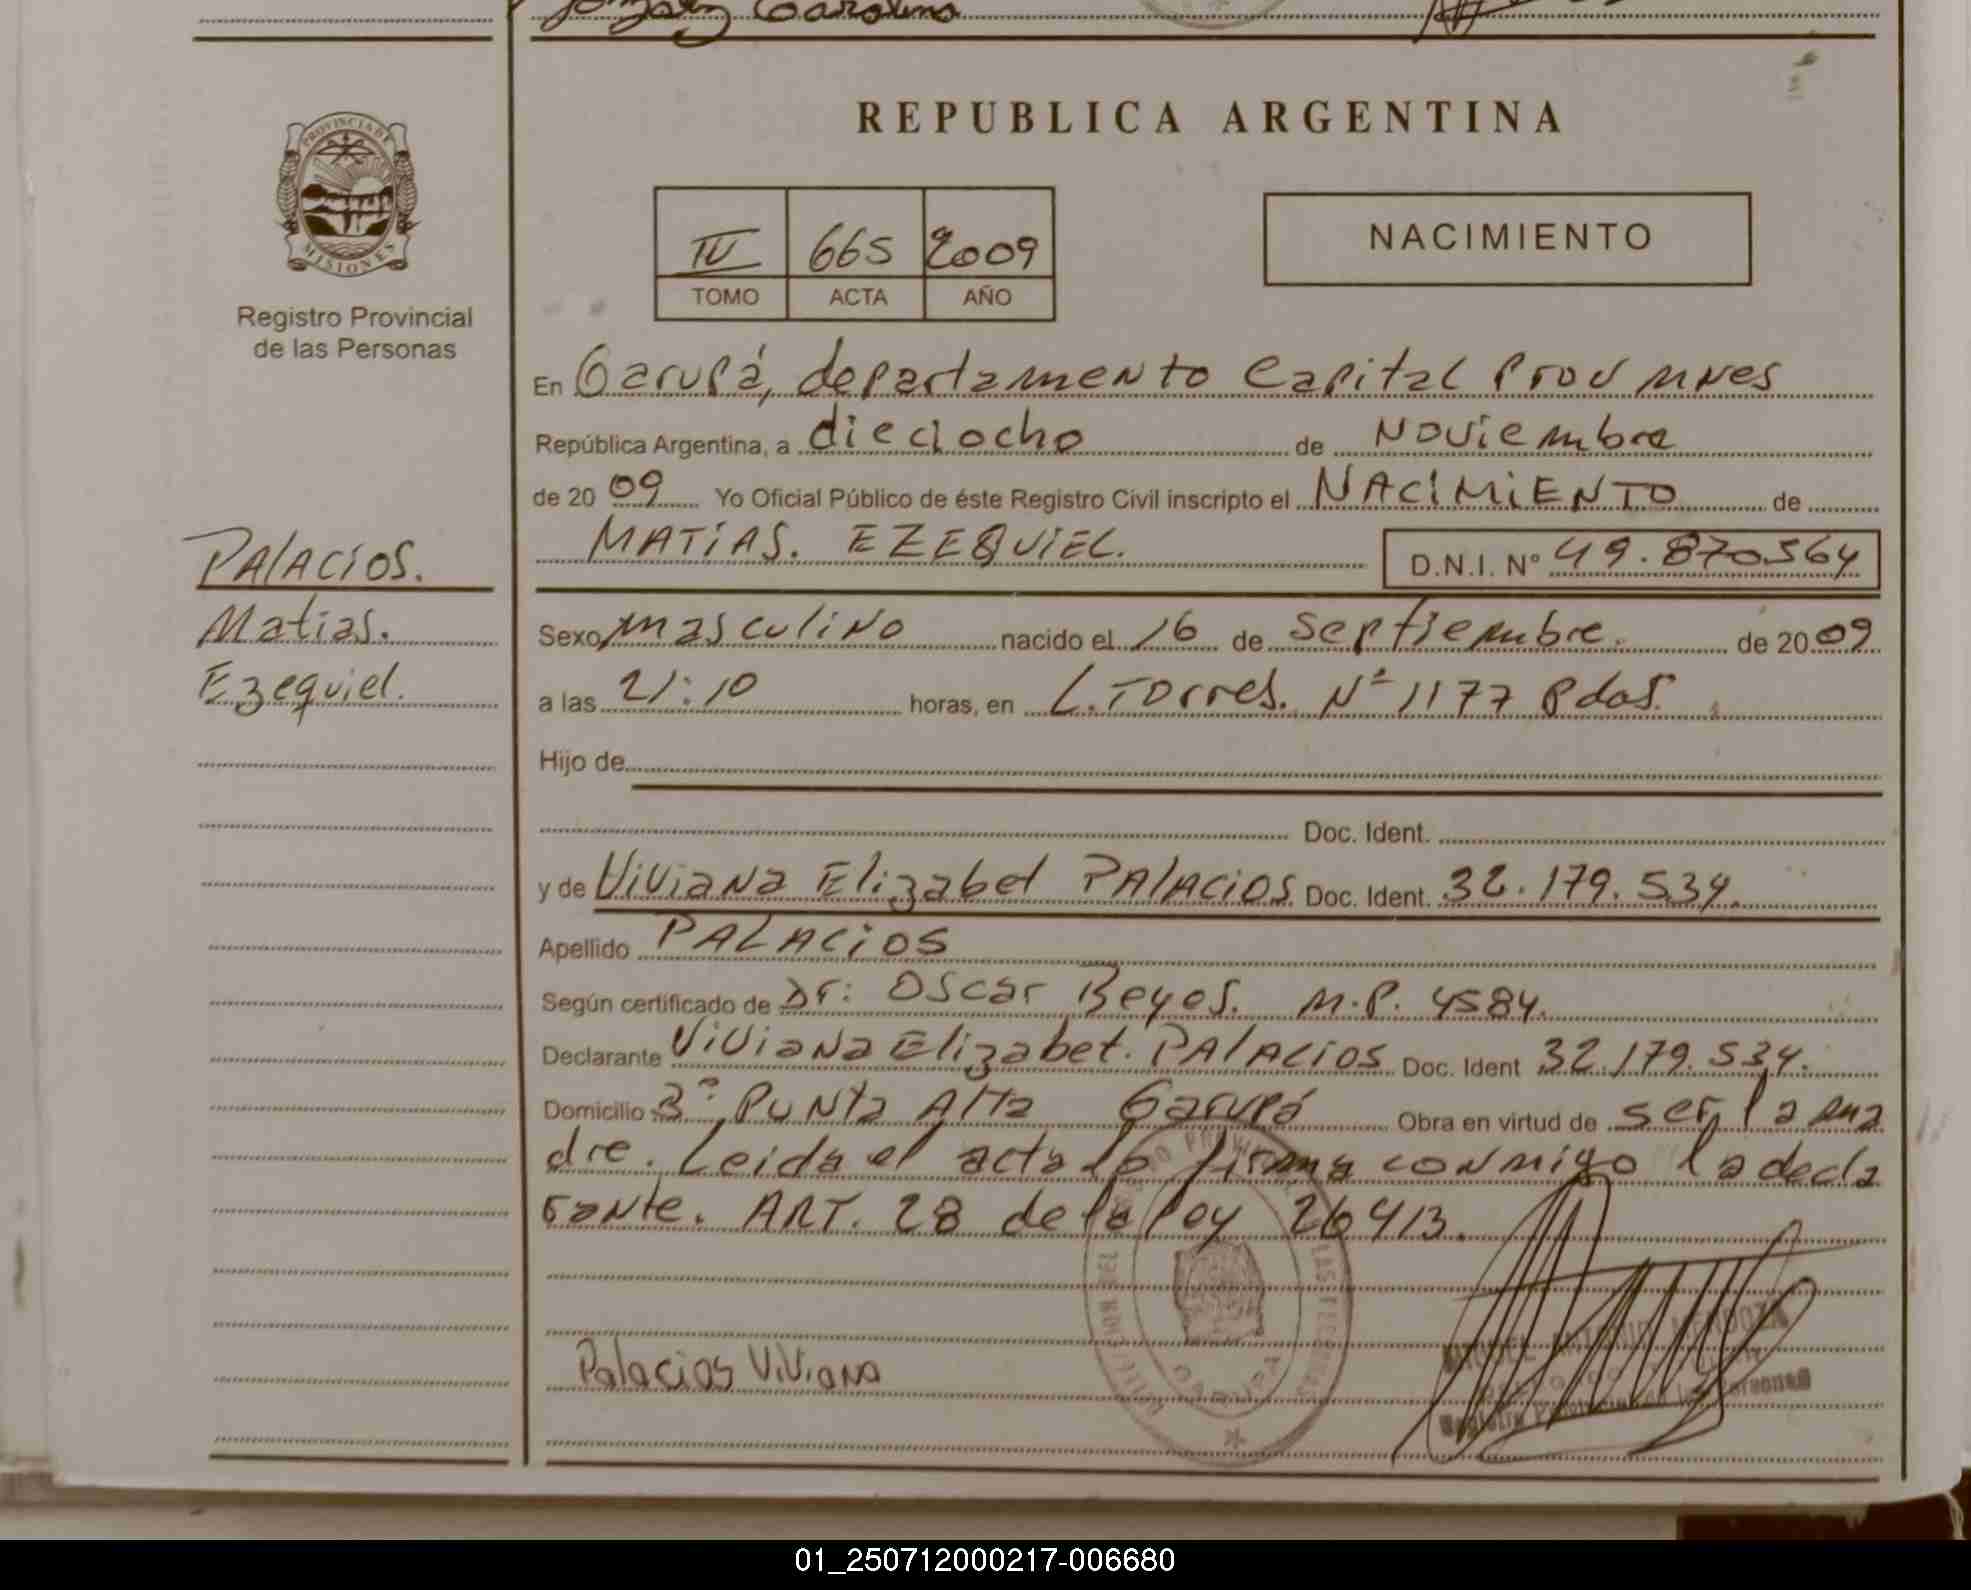 Gonzalez Carolina
PROVINCIA DE
MISIONES
Registro Provincial
de las Personas
REPUBLICA ARGENTINA
IV 665 2009
TOMO ACTA AÑO
NACIMIENTO
En Garupá, departamento Capital Prov Mnes
República Argentina, a dieciocho de Noviembre
de 2009 Yo Oficial Público de éste Registro Civil inscripto el NACIMIENTO de
MATIAS. EZEQUIEL. D.N.I. Nº 49.870564
PALACIOS.
Matias.
Ezequiel.
Sexo masculino nacido el 16 de Septiembre. de 2009
a las 21:10 horas, en L. Torres. Nº 1177 Pdas.
Hijo de
Doc. Ident.
y de Viviana Elizabet PALACIOS Doc. Ident. 32.179.534.
Apellido PALACIOS
Según certificado de Dr: Oscar Reyes. M.P. 4584.
Declarante Viviana Elizabet. PALACIOS Doc. Ident 32.179.534.
Domicilio Bº Punta Alta Garupá Obra en virtud de ser la ma
dre. Leida el acta lo firma conmigo la decla
rante. ART. 28 de la ley 26413.
Palacios Viviana
MIGUEL ANTONIO MENDOZA
Registro Provincial de las Personas
01_250712000217-006680